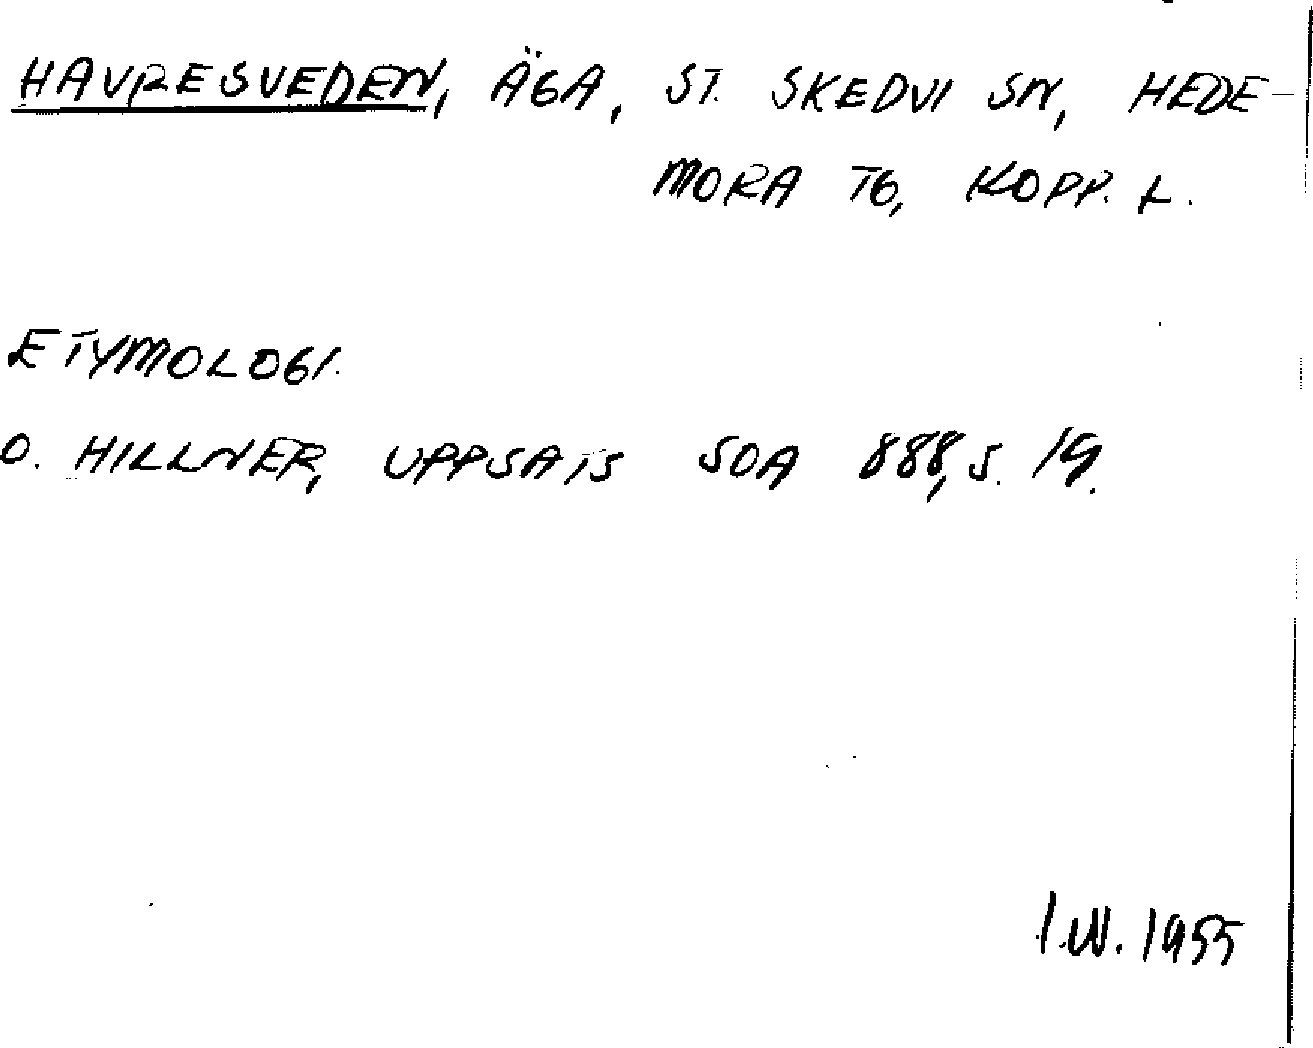 HAVRESVEDEN, ÄGA, ST. SKEDVI SN, HEDE-
MORA TG, KOPP. L.
ETYMOLOGI.
O. HILLNER, UPPSATS SOA 888, S. 19.
I.W. 1955